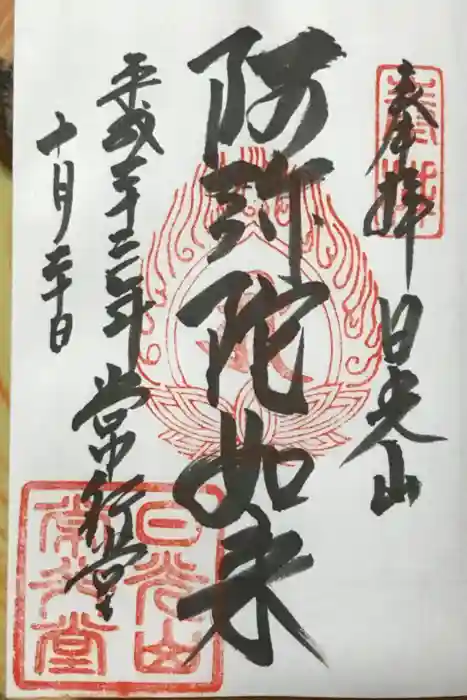 奉拝
日光山
阿弥陀如来
平成二十三年
十月二十日
常行堂
日光山
常行堂